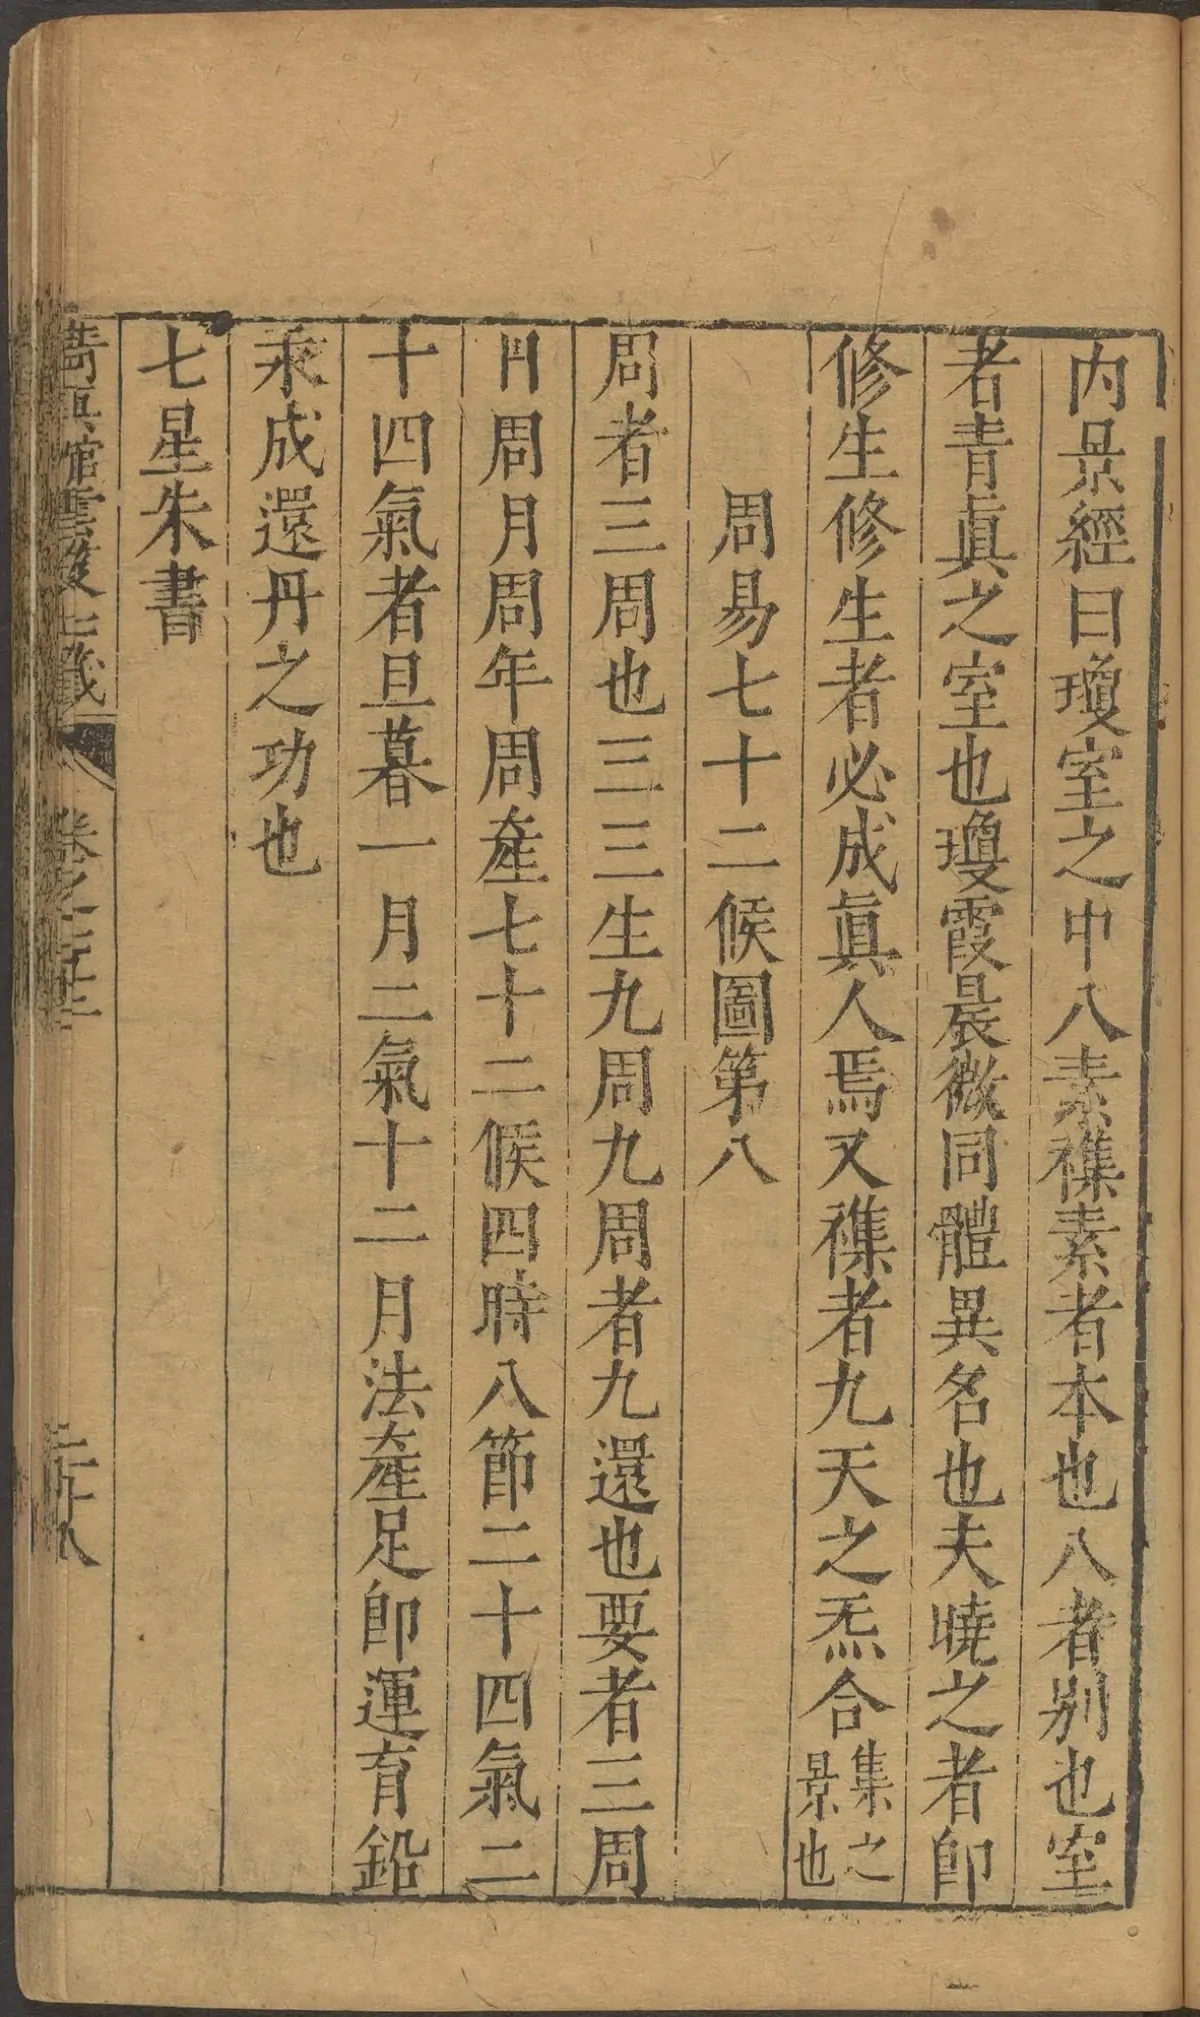 内景經曰瓊室之中八素襍素者本也八者别也室
者青眞之室也瓊霞晨微同體異名也夫曉之者即
修生修生者必成眞人焉又襍者九天之炁合集之景也
周易七十二候圖第八
周者三周也三三生九周九周者九還也要者三周
日周月周年周産七十二候四時八節二十四氣二
十四氣者旦暮一月二氣十二月法産足即運育鉛
汞成還丹之功也
七星朱書
清眞館雲笈七籤 卷之七十二 二十八